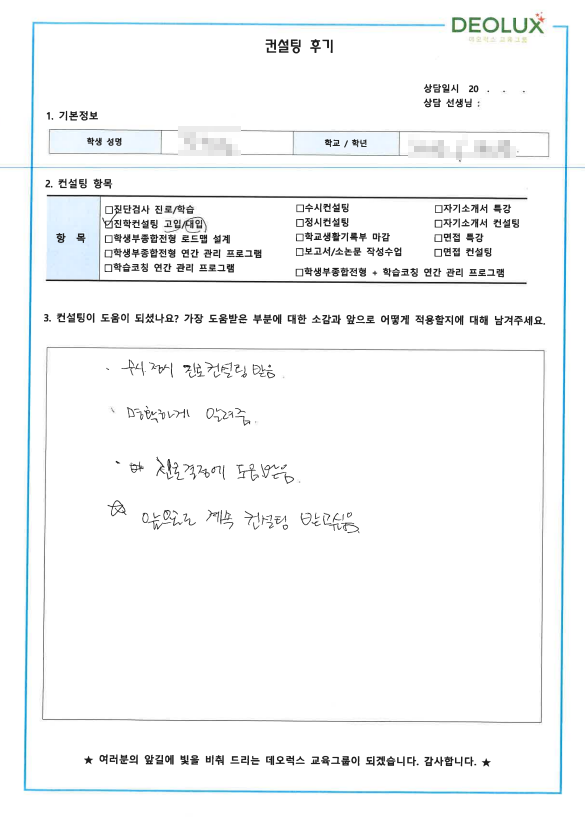 DEOLUX
데오럭스 교육그룹
컨설팅 후기
상담일시 20 . . .
상담 선생님 :
1. 기본정보
학생 성명
학교 / 학년
2. 컨설팅 항목
항 목
□진단검사 진로/학습 □수시컨설팅 □자기소개서 특강
☑진학컨설팅 고입/대입 □정시컨설팅 □자기소개서 컨설팅
□학생부종합전형 로드맵 설계 □학교생활기록부 마감 □면접 특강
□학생부종합전형 연간 관리 프로그램 □보고서/소논문 작성수업 □면접 컨설팅
□학습코칭 연간 관리 프로그램 □학생부종합전형 + 학습코칭 연간 관리 프로그램
3. 컨설팅이 도움이 되셨나요? 가장 도움받은 부분에 대한 소감과 앞으로 어떻게 적용할지에 대해 남겨주세요.
· 수시 정시 진로컨설팅 받음.
· 명확하게 알려줌.
· 진로결정에 도움받음.
☆ 앞으로도 계속 컨설팅 받고싶음
★ 여러분의 앞길에 빛을 비춰 드리는 데오럭스 교육그룹이 되겠습니다. 감사합니다. ★